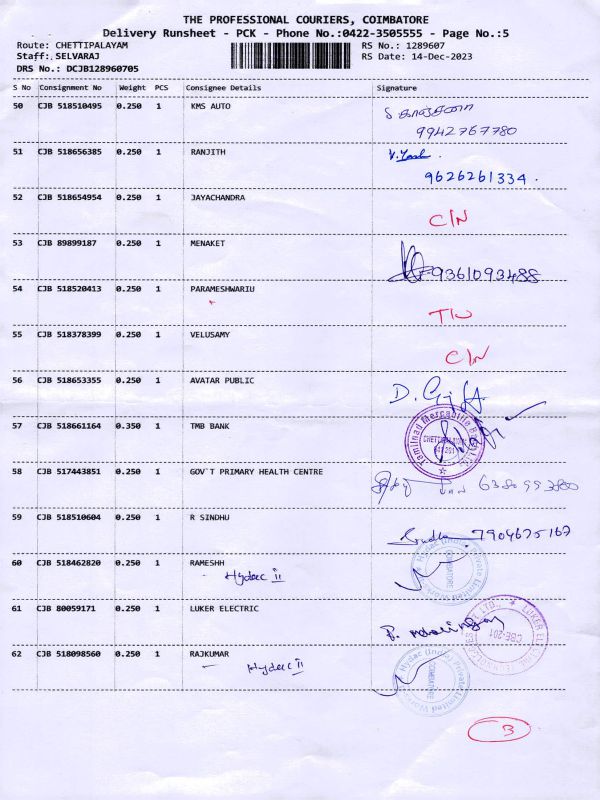 THE PROFESSIONAL COURIERS, COIMBATORE
Delivery Runsheet - PCK - Phone No.:0422-3505555 - Page No.:5
Route: CHETTIPALAYAM RS No.: 1289607
Staff: SELVARAJ RS Date: 14-Dec-2023
DRS No.: DCJB128960705
S No Consignment No Weight PCS Consignee Details Signature
50 CJB 518510495 0.250 1 KMS AUTO
9942767780
51 CJB 518656385 0.250 1 RANJITH
9626261334.
52 CJB 518654954 0.250 1 JAYACHANDRA
C/N
53 CJB 89899187 0.250 1 MENAKET
9361093488
54 CJB 518520413 0.250 1 PARAMESHWARIU
55 CJB 518378399 0.250 1 VELUSAMY
C/N
56 CJB 518653355 0.250 1 AVATAR PUBLIC
57 CJB 518661164 0.350 1 TMB BANK
Tamilnad Mercantile
58 CJB 517443851 0.250 1 GOV`T PRIMARY HEALTH CENTRE
59 CJB 518510604 0.250 1 R SINDHU
7904675167
60 CJB 518462820 0.250 1 RAMESHH
- Hydac II
Hydac (India) Private Limited
COIMBATORE
61 CJB 80059171 0.250 1 LUKER ELECTRIC
62 CJB 518098560 0.250 1 RAJKUMAR
- Hydac II
Hydac (India) Private Limited
COIMBATORE
3